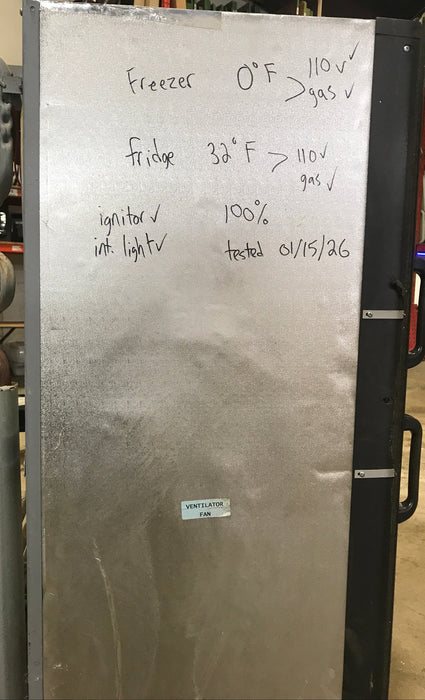 Freezer 0°F > 110v ✓
gas ✓
fridge 32°F > 110v
gas ✓
ignitor ✓ 100%
int. light ✓ tested 01/15/26
VENTILATOR
FAN